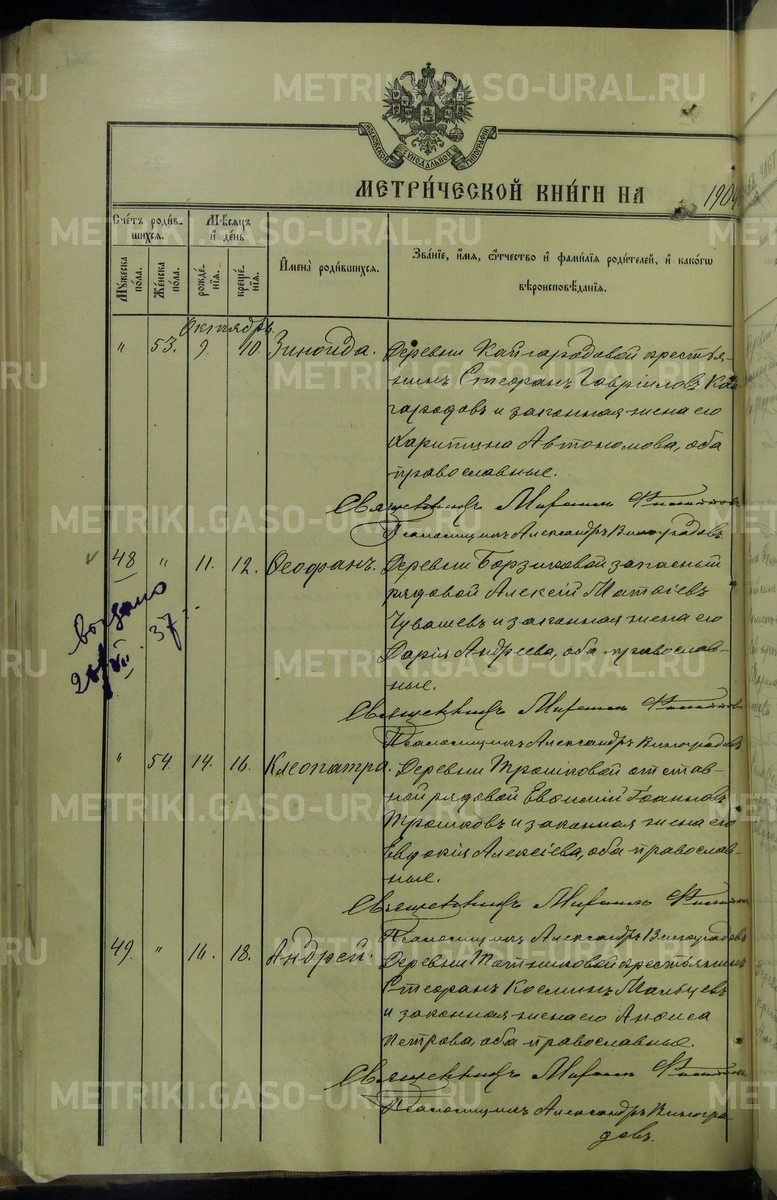 METRIKI.GASO-URAL.RU
МОСКОВСКОЙ СѴНОДАЛЬНОЙ ТИПОГРАФІИ
МЕТРИЧЕСКОЙ КНИГИ НА 1904
Счетъ родившихся.
Мужеска пола.
Женска пола.
Мѣсяцъ и день
рожденія.
крещенія.
Имена родившихся.
Званіе, имя, отчество и фамилія родителей, и какого вѣроисповѣданія.
Октябрь.
" 53. 9 10 Зиноида. Деревни Кайгородовой крестья-
нинъ Стефанъ Гавриловъ Кай-
городовъ и законная жена его
Харитина Автономова, оба
православные.
Священникъ Мирон
Псаломщикъ Александръ Виноградовъ
48 " 11. 12. Феофанъ. Деревни Борзиковой запасный
рядовой Алексій Матѳіевъ
Чувашевъ и законная жена его
Дарія Андреева, оба православ-
ные.
выдано
37
Священникъ Мирон
Псаломщикъ Александръ Виноградовъ
" 54 14. 16. Клеопатра. Деревни Трошковой отстав-
ной рядовой Евѳимій Іоанновъ
Трошковъ и законная жена его
Евдокія Алексіева, оба православ-
ные.
Священникъ Мирон
Псаломщикъ Александръ Виноградовъ
49. " 16. 18. Андрей. Деревни крестьянинъ
Стефанъ Косминъ Мальцевъ
и законная жена его Анфиса
Петрова, оба православные.
Священникъ Мирон
Псаломщикъ Александръ Виногра-
довъ.